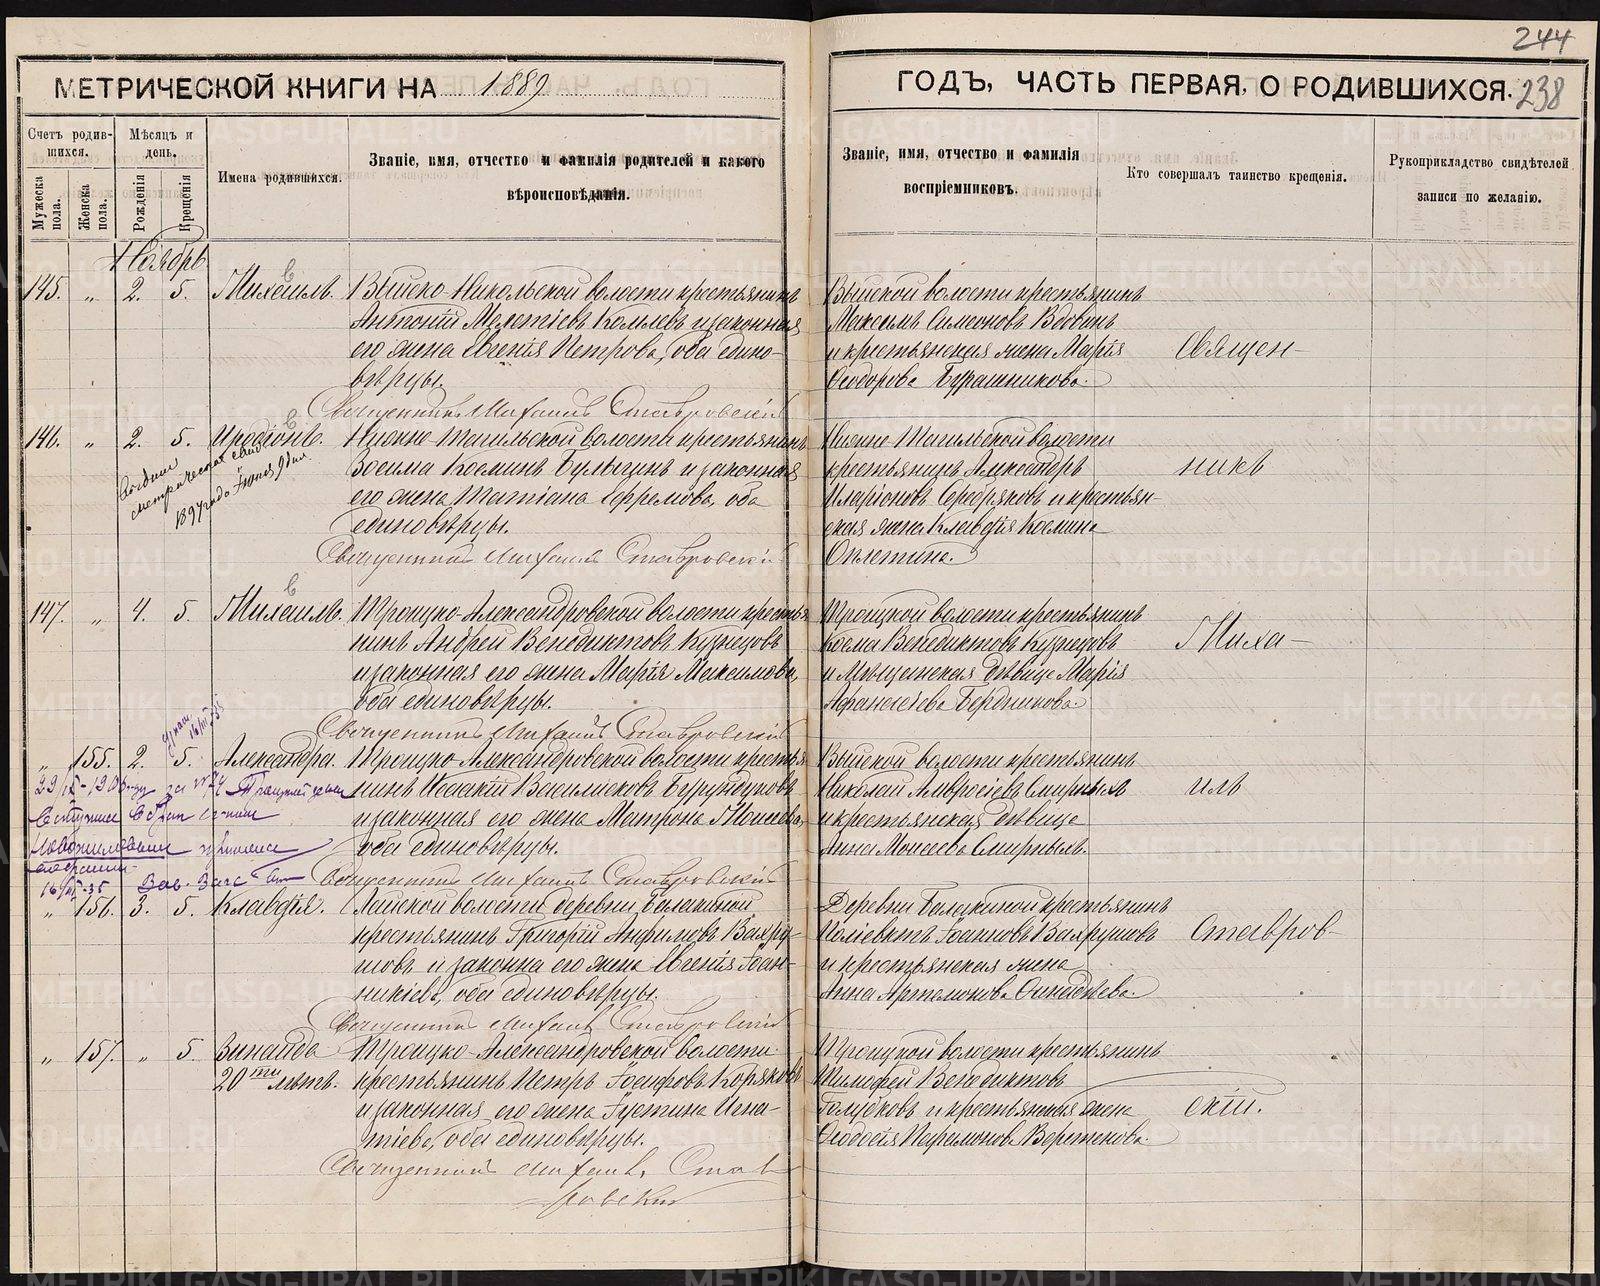 244
МЕТРИЧЕСКОЙ КНИГИ НА 1889
ГОДЪ, ЧАСТЬ ПЕРВАЯ, О РОДИВШИХСЯ. 238
Счетъ родившихся.
Мужеска пола.
Женска пола.
Мѣсяцъ и день.
Рожденія
Крещенія
Имена родившихся.
Званіе, имя, отчество и фамилія родителей и какого
вѣроисповѣданія.
Званіе, имя, отчество и фамилія
воспріемниковъ.
Кто совершалъ таинство крещенія.
Рукоприкладство свидѣтелей
записи по желанію.
Ноябрь
145. „ 2. 5. Михаилъ. Выйско-Никольской волости крестьянинъ
Антоній Мелетіевъ Комлевъ и законная
его жена Евгенія Петрова, оба едино-
вѣрцы.
Священникъ Михаилъ Ставровскій
Выйской волости крестьянинъ
Максимъ Симеоновъ Вдовинъ
и крестьянская жена Марія
Ѳеодорова Бурашникова.
Священ-
146. „ 2. 5. Иродіонъ. Нижне-Тагильской волости крестьянинъ
Зосима Косминъ Булыгинъ и законная
его жена Татіана Ефремова, оба
единовѣрцы.
Священникъ Михаилъ Ставровскій
метрическое
1897 года Іюня 9 дня
Нижне-Тагильской волости
крестьянинъ Александръ
Иларіоновъ Серебряковъ и крестьян-
ская жена Клавдія Космина
Оплетина.
никъ
147. „ 4. 5. Михаилъ. Троицко-Александровской волости крестья-
нинъ Андрей Венедиктовъ Кузнецовъ
и законная его жена Марія Максимова,
оба единовѣрцы.
Священникъ Михаилъ Ставровскій
Троицкой волости крестьянинъ
Косма Венедиктовъ Кузнецовъ
и мѣщанская дѣвица Марія
Афанасіева Бердникова.
Миха-
„ 155. 2. 5. Александра. Троицко-Александровской волости крестья-
нинъ Исаакій Василисковъ Бурундуковъ
и законная его жена Матрона Моисеева,
оба единовѣрцы.
Священникъ Михаилъ Ставровскій
16/III-35
Зав. Загс
Выйской волости крестьянинъ
Николай Амвросіевъ Смирныхъ
и крестьянская дѣвица
Анна Моисеева Смирныхъ.
илъ
„ 156. 3. 5. Клавдія. Лайской волости деревни Балакиной
крестьянинъ Григорій Анфимовъ Вахру-
шовъ и законна его жена Евгенія Іоан-
никіева, оба единовѣрцы.
Священникъ Михаилъ Ставровскій
Деревни Балакиной крестьянинъ
Поліевктъ Іоанновъ Вахрушовъ
и крестьянская жена
Анна Артемонова
Ставров-
„ 157. „ 5. Зинаида Троицко-Александровской волости
20ти лѣтъ. крестьянинъ Петръ Іосифовъ Коряковъ
и законная его жена Іустина Игна-
тіева, оба единовѣрцы.
Священникъ Михаилъ Став
ровскій
Троицкой волости крестьянинъ
Тимофей Венедиктовъ
Голубковъ и крестьянская жена
Ѳеодосія Парамонова Веретенова.
скій.